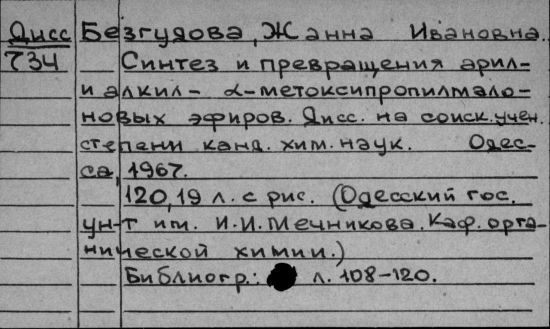 Дисс Безгудова, Жанна Ивановна.
734 Синтез и превращения арил-
и алкил- α-метоксипропилмало-
новых эфиров. Дисс. на соиск. учен.
степени канд. хим. наук. Одес-
са, 1967.
120, 19 л. с рис. (Одесский гос.
ун-т им. И.И. Мечникова. Каф. орга-
нической химии.)
Библиогр.: л. 108-120.